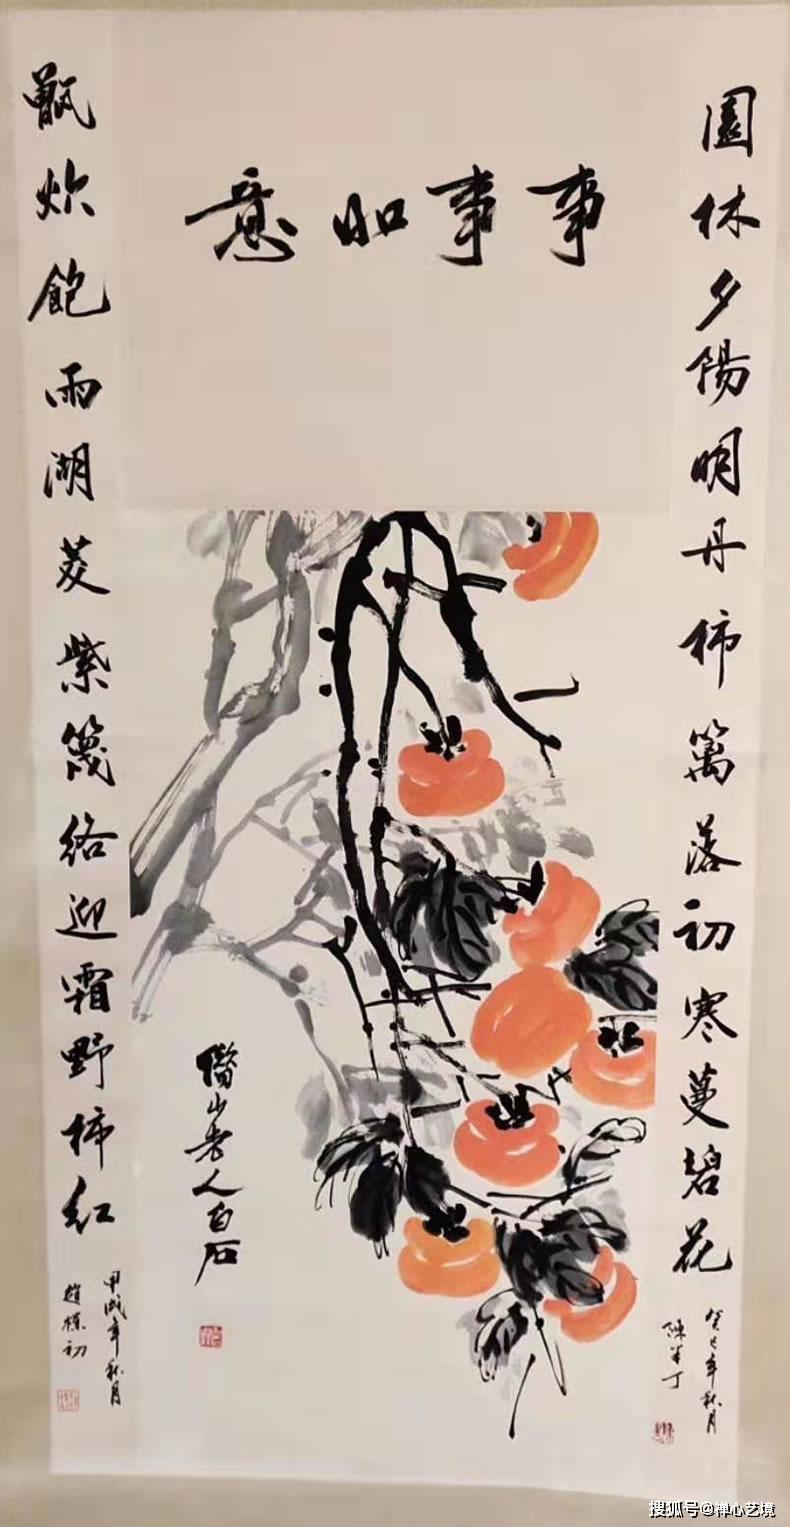 事事如意
園林夕陽明丹柿篱落初寒蔓碧花
癸巳年秋月
陳半丁
甑炊飽雨湖菱紫篾絡迎霜野柿紅
甲戌年秋月
趙樸初
借山老人白石
搜狐号@禅心艺境